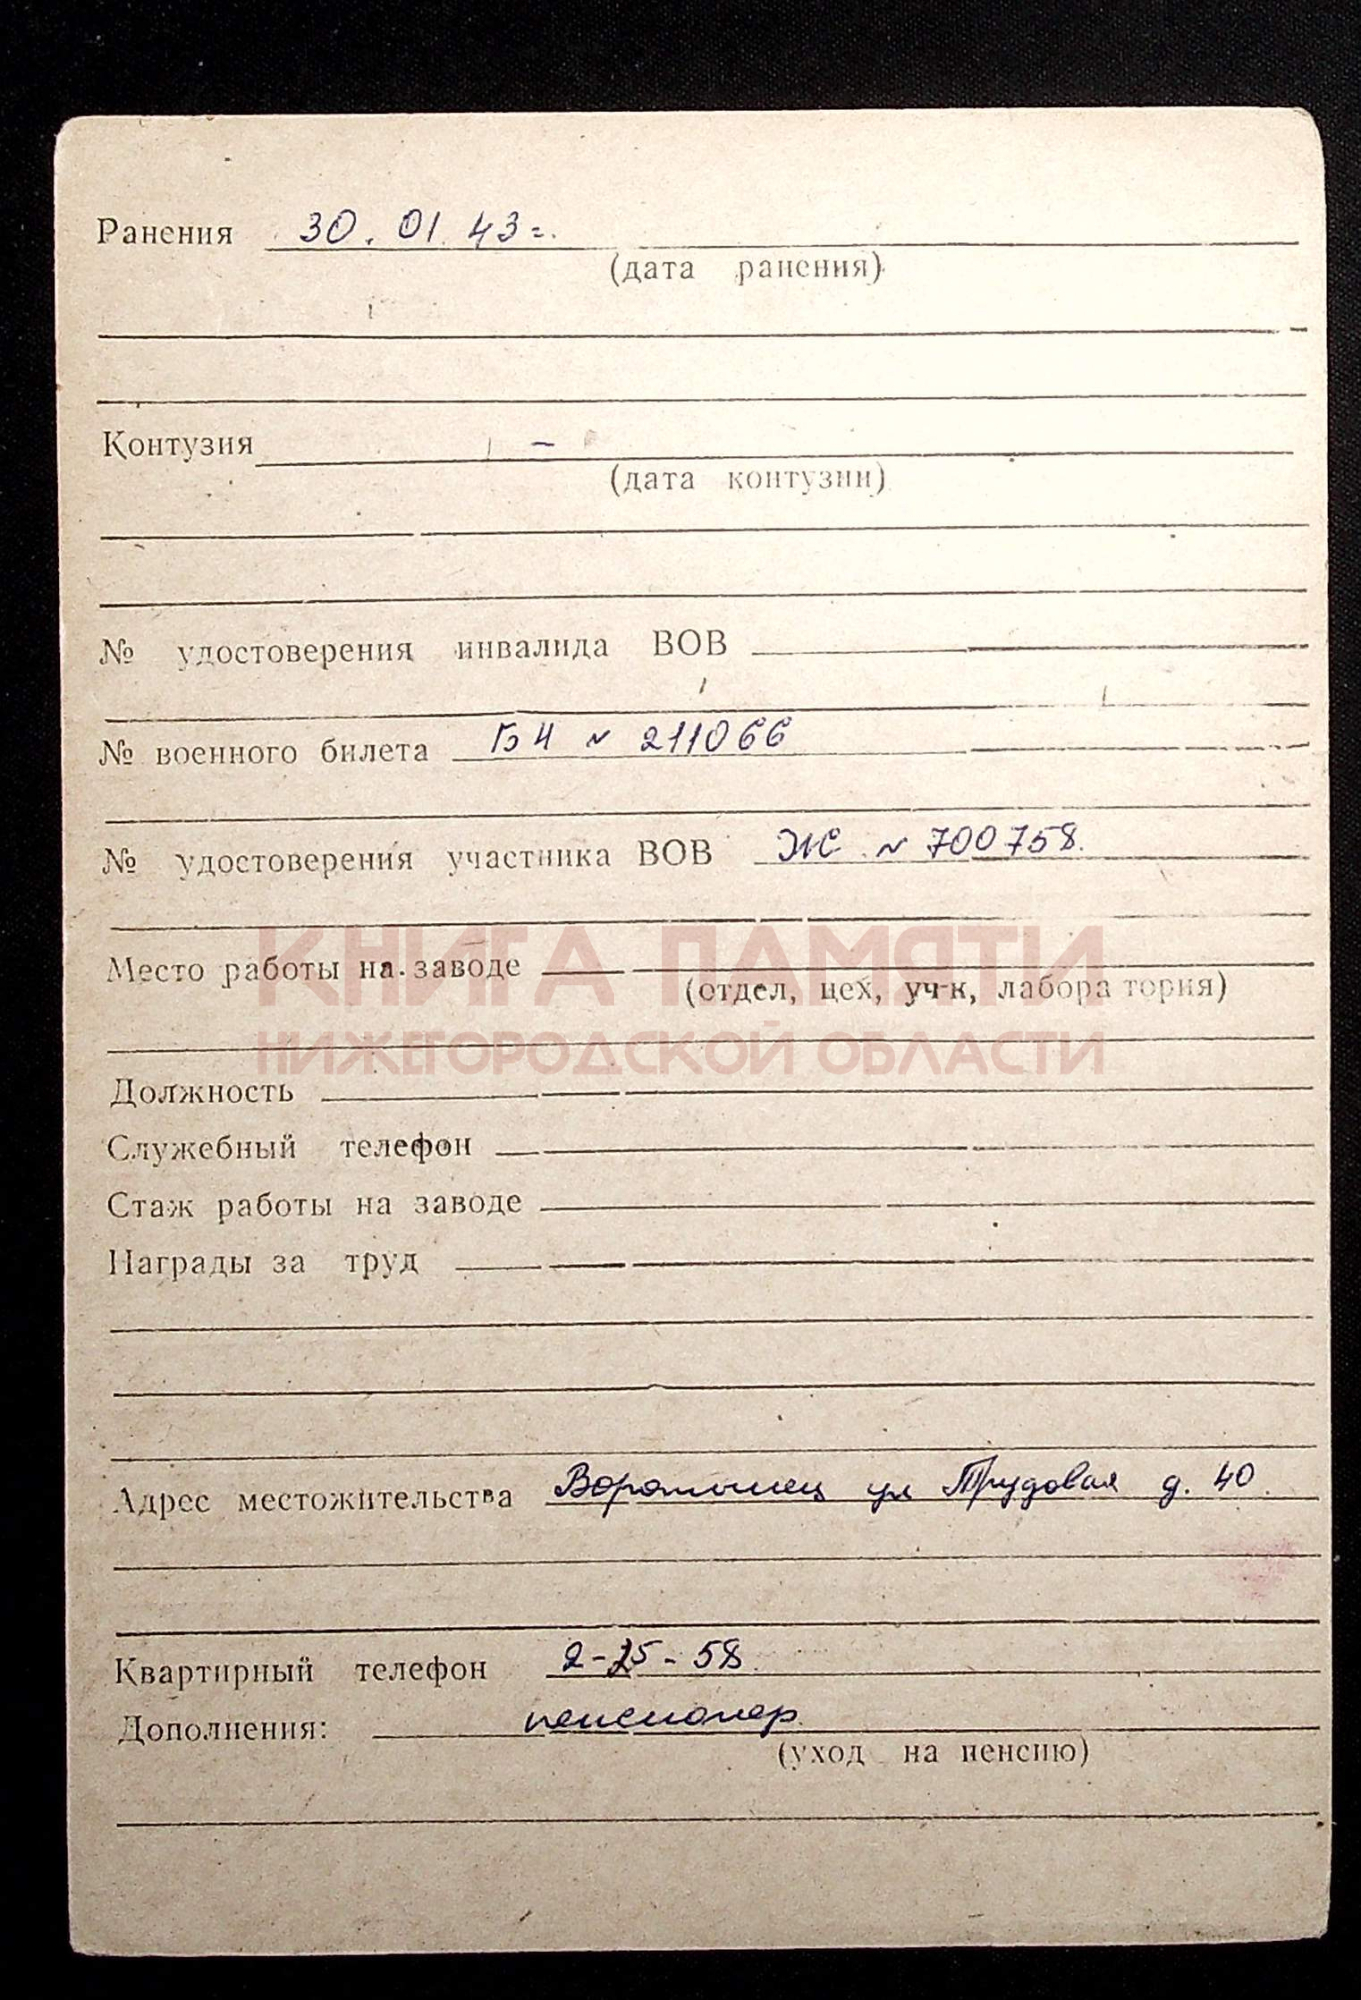 Ранения 30.01 43г.
(дата ранения)
Контузия –
(дата контузии)
№ удостоверения инвалида ВОВ
№ военного билета Б4 № 211066
№ удостоверения участника ВОВ Ж № 700758.
КНИГА ПАМЯТИ
Место работы на заводе
(отдел, цех, уч-к, лаборатория)
НИЖЕГОРОДСКОЙ ОБЛАСТИ
Должность
Служебный телефон
Стаж работы на заводе
Награды за труд
Адрес местожительства Воротынец ул Трудовая д. 40.
Квартирный телефон 2-25-58
Дополнения: пенсионер
(уход на пенсию)